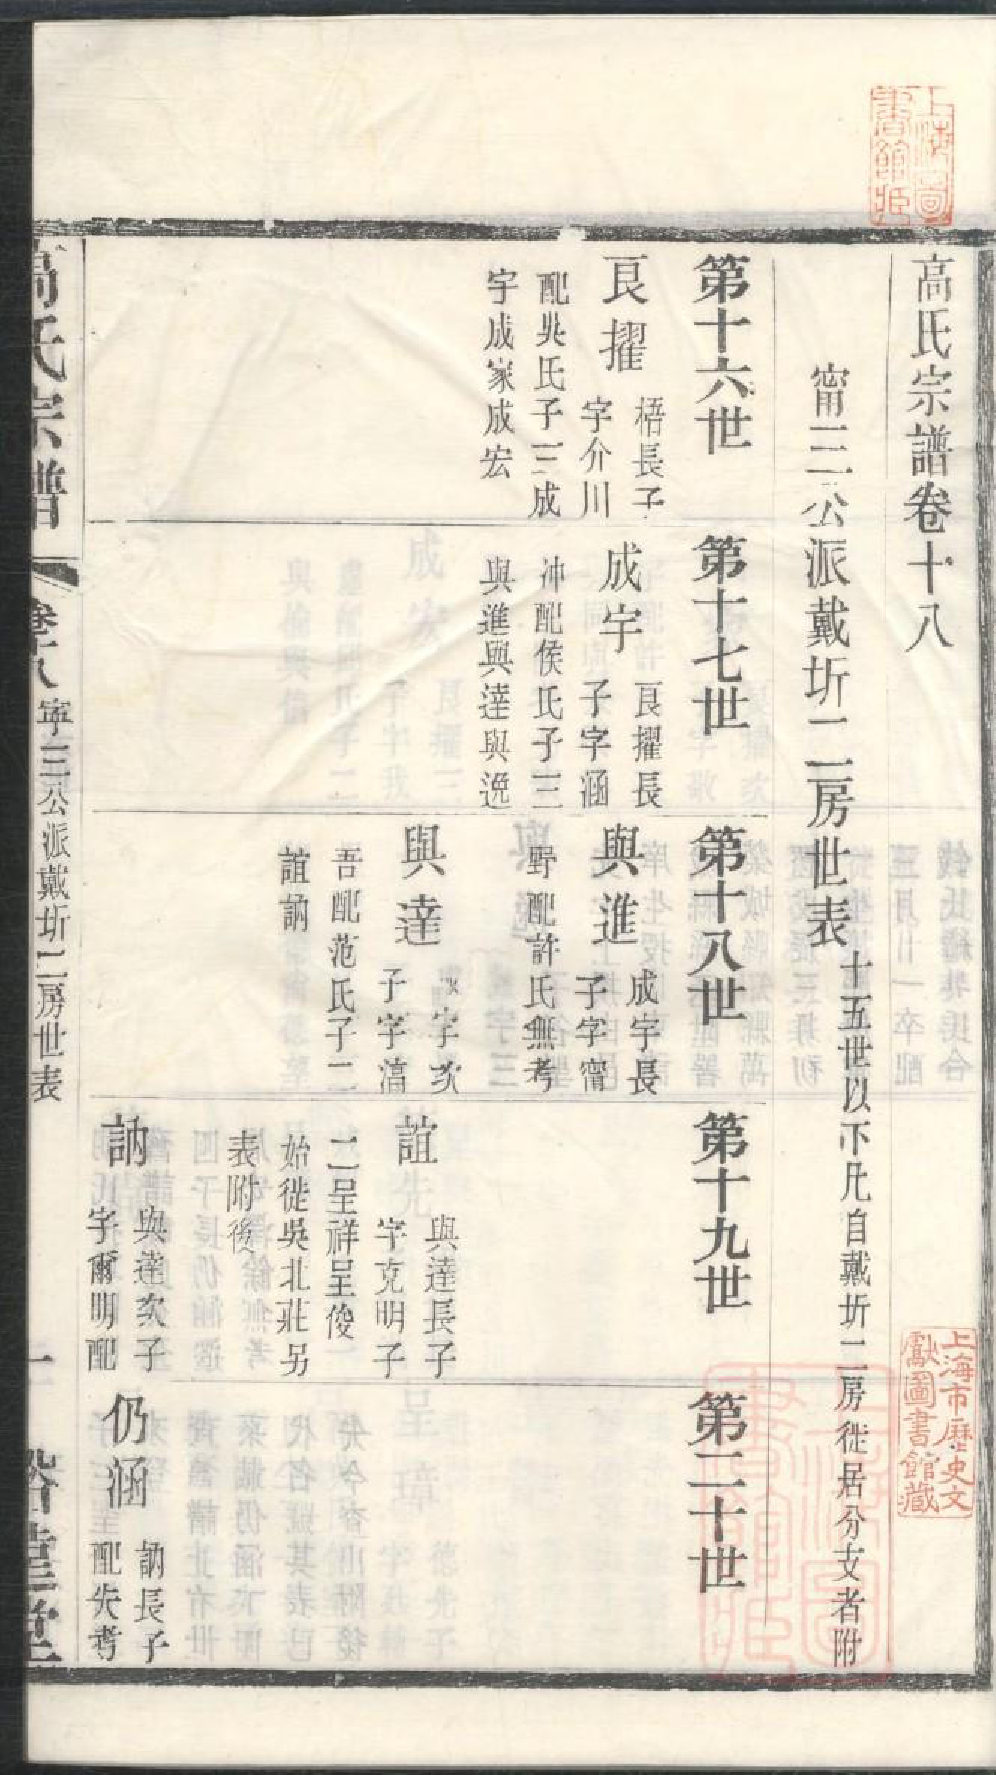 高氏宗譜卷十八
甯三公派戴圻二房世表 十五世以下凡自戴圻二房徙居分支者附
第十六世
良擢 梧長子
字介川
配吳氏子三成
宇成家成宏
第十七世
成宇 良擢長
子字涵
沖配侯氏子三
與進與達與逸
第十八世
與進 成宇長
子字甯
野配許氏無考
與達 成宇次
子字湻
吾配范氏子二
誼訥
第十九世
誼 與達長子
字克明子
二呈祥呈俊
始徙吳北莊另
表附後
訥 與達次子
字爾明配
第二十世
仍涵 訥長子
配失考
高氏宗譜 卷十八 甯三公派戴圻二房世表 裕慶堂
上海圖書館藏
上海市歷史文獻圖書館藏